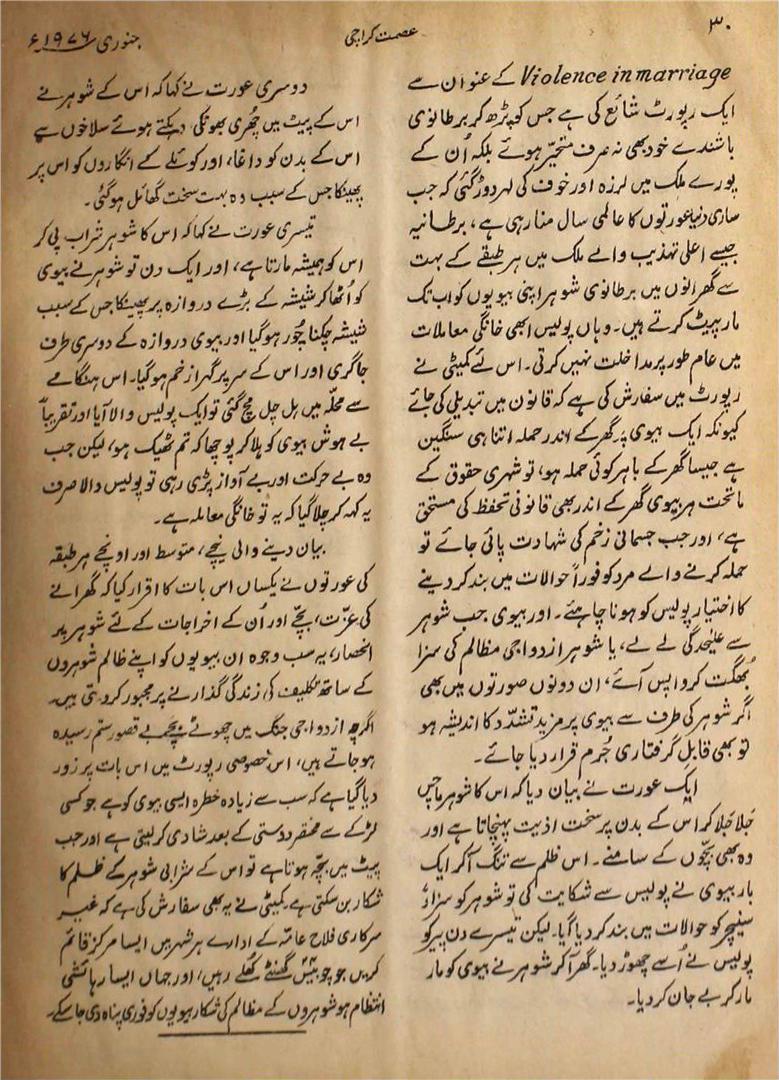 ۳۰
عصمت کراچی
جنوری ۱۹۷۶ء
Violence in marriage کے عنوان سے
ایک رپورٹ شائع کی ہے جس کو پڑھ کر برطانوی
باشندے خود بھی نہ صرف متحیر ہوئے بلکہ اُن کے
پورے ملک میں لرزہ اور خوف کی لہر دوڑ گئی کہ جب
ساری دنیا عورتوں کا عالمی سال منا رہی ہے، برطانیہ
جیسے اعلیٰ تہذیب والے ملک میں ہر طبقے کے بہت
سے گھرانوں میں برطانوی شوہر اپنی بیویوں کو اب تک
مارپیٹ کرتے ہیں۔ وہاں پولیس ابھی خانگی معاملات
میں عام طور پر مداخلت نہیں کرتی۔ اس لئے کمیٹی نے
رپورٹ میں سفارش کی ہے کہ قانون میں تبدیلی کی جائے
کیونکہ ایک بیوی پر گھر کے اندر حملہ اتنا ہی سنگین
ہے جیسا گھر کے باہر کوئی حملہ ہو، تو شہری حقوق کے
ماتحت ہر بیوی گھر کے اندر بھی قانونی تحفظ کی مستحق
ہے، اور جب جسمانی زخم کی شہادت پائی جائے تو
حملہ کرنے والے مرد کو فوراً حوالات میں بند کر دینے
کا اختیار پولیس کو ہونا چاہئے۔ اور بیوی جب شوہر
سے علیٰحدگی لے لے، یا شوہر ازدواجی مظالم کی سزا
بُھگت کر واپس آئے، ان دونوں صورتوں میں بھی
اگر شوہر کی طرف سے بیوی پر مزید تشدّد کا اندیشہ ہو
تو بھی قابل گرفتاری جُرم قرار دیا جائے۔
ایک عورت نے بیان دیا کہ اس کا شوہر ماچس
جَلا جَلا کر اس کے بدن پر سخت اذیت پہنچاتا ہے اور
وہ بھی بچّوں کے سامنے۔ اس ظلم سے تنگ آکر ایک
بار بیوی نے پولیس سے شکایت کی تو شوہر کو سزاءً
سنیچر کو حوالات میں بند کر دیا گیا۔ لیکن تیسرے دن پیر کو
پولیس نے اُسے چھوڑ دیا۔ گھر آکر شوہر نے بیوی کو مار
مار کر بے جان کر دیا۔
دوسری عورت نے کہا کہ اس کے شوہر نے
اس کے پیٹ میں چُھری بھونکی دہکتے ہوئے سلاخوں سے
اس کے بدن کو داغا، اور کوئلے کے انگاروں کو اس پر
پھینکا جس کے سبب وہ بہت سخت گھائل ہو گئی۔
تیسری عورت نے کہا کہ اس کا شوہر شراب پی کر
اس کو ہمیشہ مارتا ہے، اور ایک دن تو شوہر نے بیوی
کو اُٹھا کر شیشہ کے بڑے دروازہ پر پھینکا جس کے سبب
شیشہ چکنا چُور ہو گیا اور بیوی دروازہ کے دوسری طرف
جا گری اور اس کے سر پر گہرا زخم ہو گیا۔ اس ہنگامے
سے محلّہ میں ہل چل مچ گئی تو ایک پولیس والا آیا اور تقریباً
بے ہوش بیوی کو ہلا کر پوچھا کہ تم ٹھیک ہو، لیکن جب
وہ بے حرکت اور بے آواز پڑی رہی تو پولیس والا صرف
یہ کہہ کر چلا گیا کہ یہ تو خانگی معاملہ ہے۔
بیان دینے والی نیچے، متوسط اور اونچے ہر طبقہ
کی عورتوں نے یکساں اس بات کا اقرار کیا کہ گھرانے
کی عزّت، بچّے اور اُن کے اخراجات کے لئے شوہر پر
انحصار، یہ سب وجوہ ان بیویوں کو اپنے ظالم شوہروں
کے ساتھ تکلیف کی زندگی گذارنے پر مجبور کر دیتی ہیں۔
اگرچہ ازدواجی جنگ میں چھوٹے بچے بے قصور ستم رسیدہ
ہو جاتے ہیں، اس خصوصی رپورٹ میں اس بات پر زور
دیا گیا ہے کہ سب سے زیادہ خطرہ ایسی بیوی کو ہے جو کسی
لڑکے سے مختصر دوستی کے بعد شادی کر لیتی ہے اور جب
پیٹ میں بچّہ ہوتا ہے تو اس کے شرابی شوہر کے ظلم کا
شکار بن سکتی ہے۔ کمیٹی نے یہ بھی سفارش کی ہے کہ غیر
سرکاری فلاح عامّہ کے ادارے ہر شہر میں ایسا مرکز قائم
کریں جو چوبیس ۲۴ گھنٹے کُھلے رہیں، اور جہاں ایسا رہائشی
انتظام ہو شوہروں کے مظالم کی شکار بیویوں کو فوری پناہ دی جا سکے۔